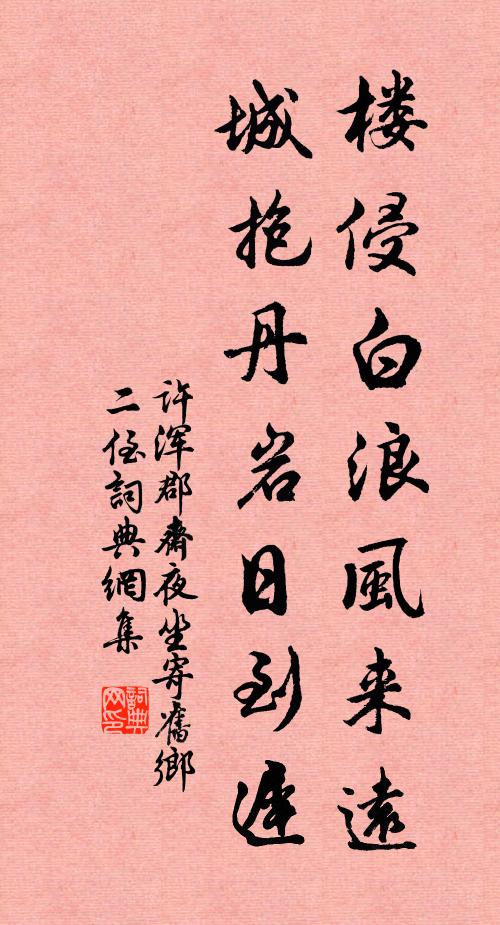 楼侵白浪風来遠
城抱丹岩日到遲
许浑郡齋夜坐寄舊鄉
二侄詞典網集
詞典
网印